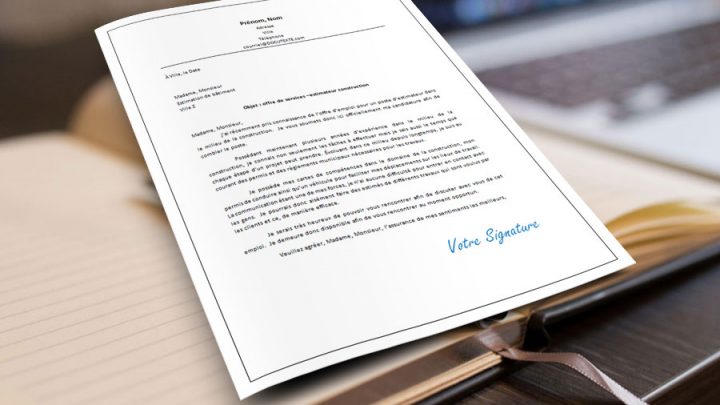 Prénom, Nom
Adresse
Ville
Téléphone
courriel@DOCUTEXTE.com
À Ville, la Date
Madame, Monsieur
Estimation de bâtiment
Ville Z
Objet : offre de services –estimateur construction
Madame, Monsieur,
J'ai récemment pris connaissance de l'offre d'emploi pour un poste d'estimateur dans
le milieu de la construction. Je vous soumets donc ici officiellement ma candidature afin de
combler le poste.
Possédant maintenant plusieurs années d'expérience dans le milieu de la
construction, je connais non seulement les tâches à effectuer mais je sais aussi le temps que
chaque étape d'un projet peut prendre. Évoluant dans ce milieu depuis longtemps, je suis au
courant des permis et des règlements municipaux nécessaires pour les travaux.
Je possède mes cartes de compétences dans le domaine de la construction, mon
permis de conduire ainsi qu'un véhicule pour faciliter mes déplacements sur les lieux de travail.
La communication étant une de mes forces, je n'ai aucune difficulté pour entrer en contact avec
les gens. Je pourrais donc aisément faire des estimés de différents travaux qui sont voulus par
les clients et ce, de manière efficace.
Je serais très heureux de pouvoir vous rencontrer afin de discuter avec vous de cet
emploi. Je demeure donc disponible afin de vous rencontrer au moment opportun.
Veuillez agréer, Madame, Monsieur, l'assurance de mes sentiments les meilleurs,
Votre Signature